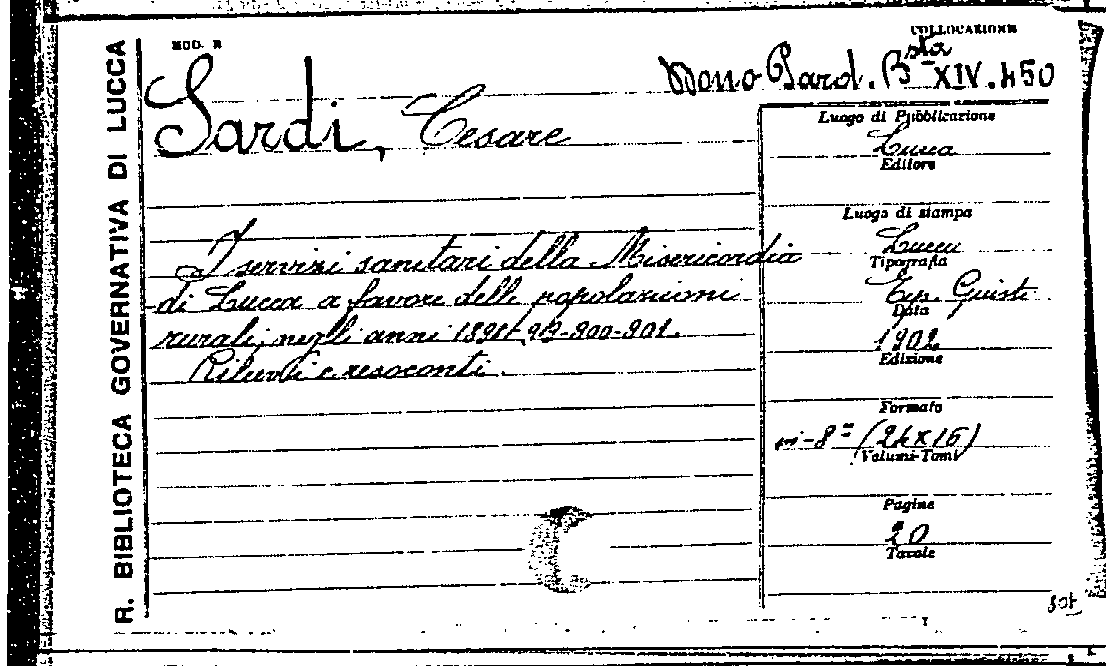 R. BIBLIOTECA GOVERNATIVA DI LUCCA
MOD. B
COLLOCAZIONE
Dono Pard. Bsta XIV. 450
Sardi, Cesare
I servizi sanitari della Misericordia
di Lucca a favore delle popolazioni
rurali, negli anni
Rilievi e resoconti.
Luogo di Pubblicazione
Lucca
Editore
Luogo di stampa
Lucca
Tipografia
Tip. Giusti
Data
1902
Edizione
Formato
in-8° (24x16)
Volumi-Tomi
Pagine
20
Tavole